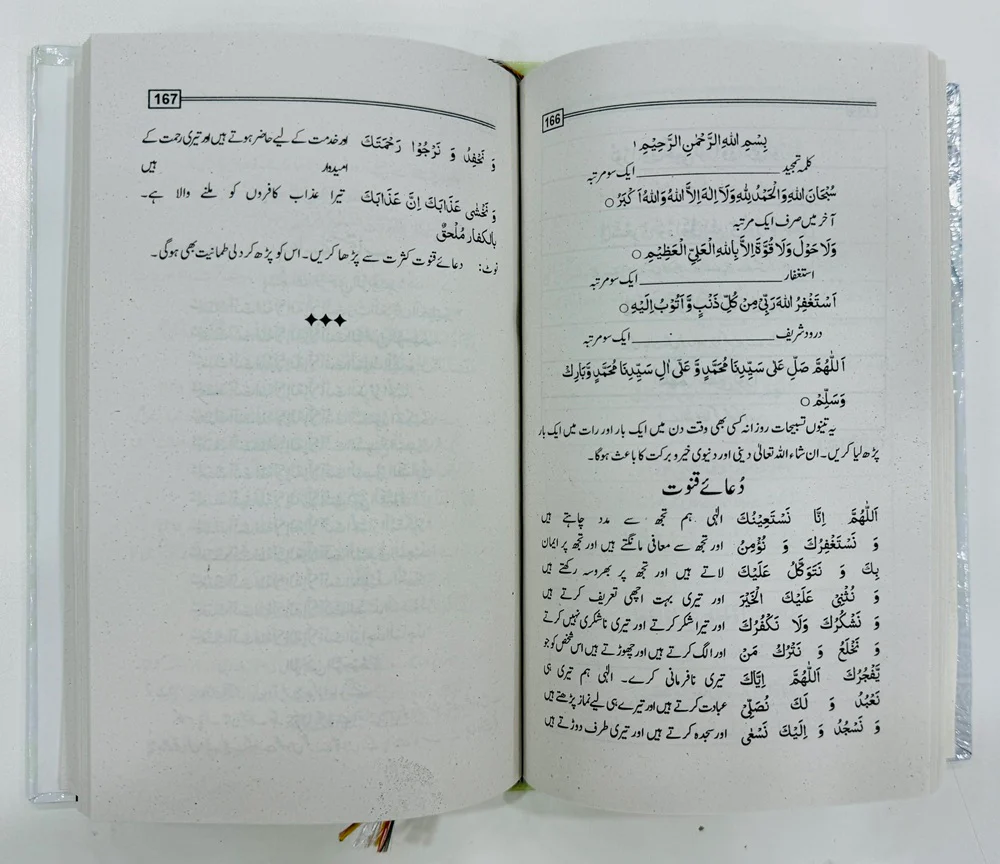 166
بِسْمِ اللهِ الرَّحْمٰنِ الرَّحِيْمِ ۱
کلمہ تمجید ــــــــــــــــ ایک سو مرتبہ
سُبْحَانَ اللهِ وَالْحَمْدُ لِلّٰهِ وَلَآ اِلٰهَ اِلَّا اللهُ وَاللهُ اَكْبَرُ ○
آخر میں صرف ایک مرتبہ
وَلَا حَوْلَ وَلَا قُوَّةَ اِلَّا بِاللهِ الْعَلِيِّ الْعَظِيْمِ ○
استغفار ــــــــــــــــ ایک سو مرتبہ
اَسْتَغْفِرُ اللهَ رَبِّيْ مِنْ كُلِّ ذَنْبٍ وَّ اَتُوْبُ اِلَيْهِ ○
درود شریف ــــــــــــــــ ایک سو مرتبہ
اَللّٰهُمَّ صَلِّ عَلٰى سَيِّدِنَا مُحَمَّدٍ وَّ عَلٰى اٰلِ سَيِّدِنَا مُحَمَّدٍ وَّبَارِكْ
وَسَلِّمْ ○
یہ تینوں تسبیحات روزانہ کسی بھی وقت دن میں ایک بار اور رات میں ایک بار
پڑھ لیا کریں۔ ان شاء اللہ تعالیٰ دینی اور دنیوی خیر و برکت کا باعث ہوگا۔
دُعائے قنوت
اَللّٰهُمَّ اِنَّا نَسْتَعِيْنُكَ الٰہی ہم تجھ سے مدد چاہتے ہیں
وَ نَسْتَغْفِرُكَ وَ نُؤْمِنُ اور تجھ سے معافی مانگتے ہیں اور تجھ پر ایمان
بِكَ وَ نَتَوَكَّلُ عَلَيْكَ لاتے ہیں اور تجھ پر بھروسہ رکھتے ہیں
وَ نُثْنِيْ عَلَيْكَ الْخَيْرَ اور تیری بہت اچھی تعریف کرتے ہیں
وَ نَشْكُرُكَ وَلَا نَكْفُرُكَ اور تیرا شکر کرتے اور تیری ناشکری نہیں کرتے
وَ نَخْلَعُ وَ نَتْرُكُ مَنْ اور الگ کرتے ہیں اور چھوڑتے ہیں اس شخص کو جو
يَّفْجُرُكَ اَللّٰهُمَّ اِيَّاكَ تیری نافرمانی کرے۔ الٰہی ہم تیری ہی
نَعْبُدُ وَ لَكَ نُصَلِّيْ عبادت کرتے ہیں اور تیرے ہی لیے نماز پڑھتے ہیں
وَ نَسْجُدُ وَ اِلَيْكَ نَسْعٰى اور سجدہ کرتے ہیں اور تیری طرف دوڑتے ہیں
167
وَ نَحْفِدُ وَ نَرْجُوْا رَحْمَتَكَ اور خدمت کے لیے حاضر ہوتے ہیں اور تیری رحمت کے
امیدوار ہیں
وَ نَخْشٰى عَذَابَكَ اِنَّ عَذَابَكَ تیرا عذاب کافروں کو ملنے والا ہے۔
بِالْكفار مُلْحِقٌ
نوٹ: دعائے قنوت کثرت سے پڑھا کریں۔ اس کو پڑھ کر دلی طمانیت بھی ہوگی۔